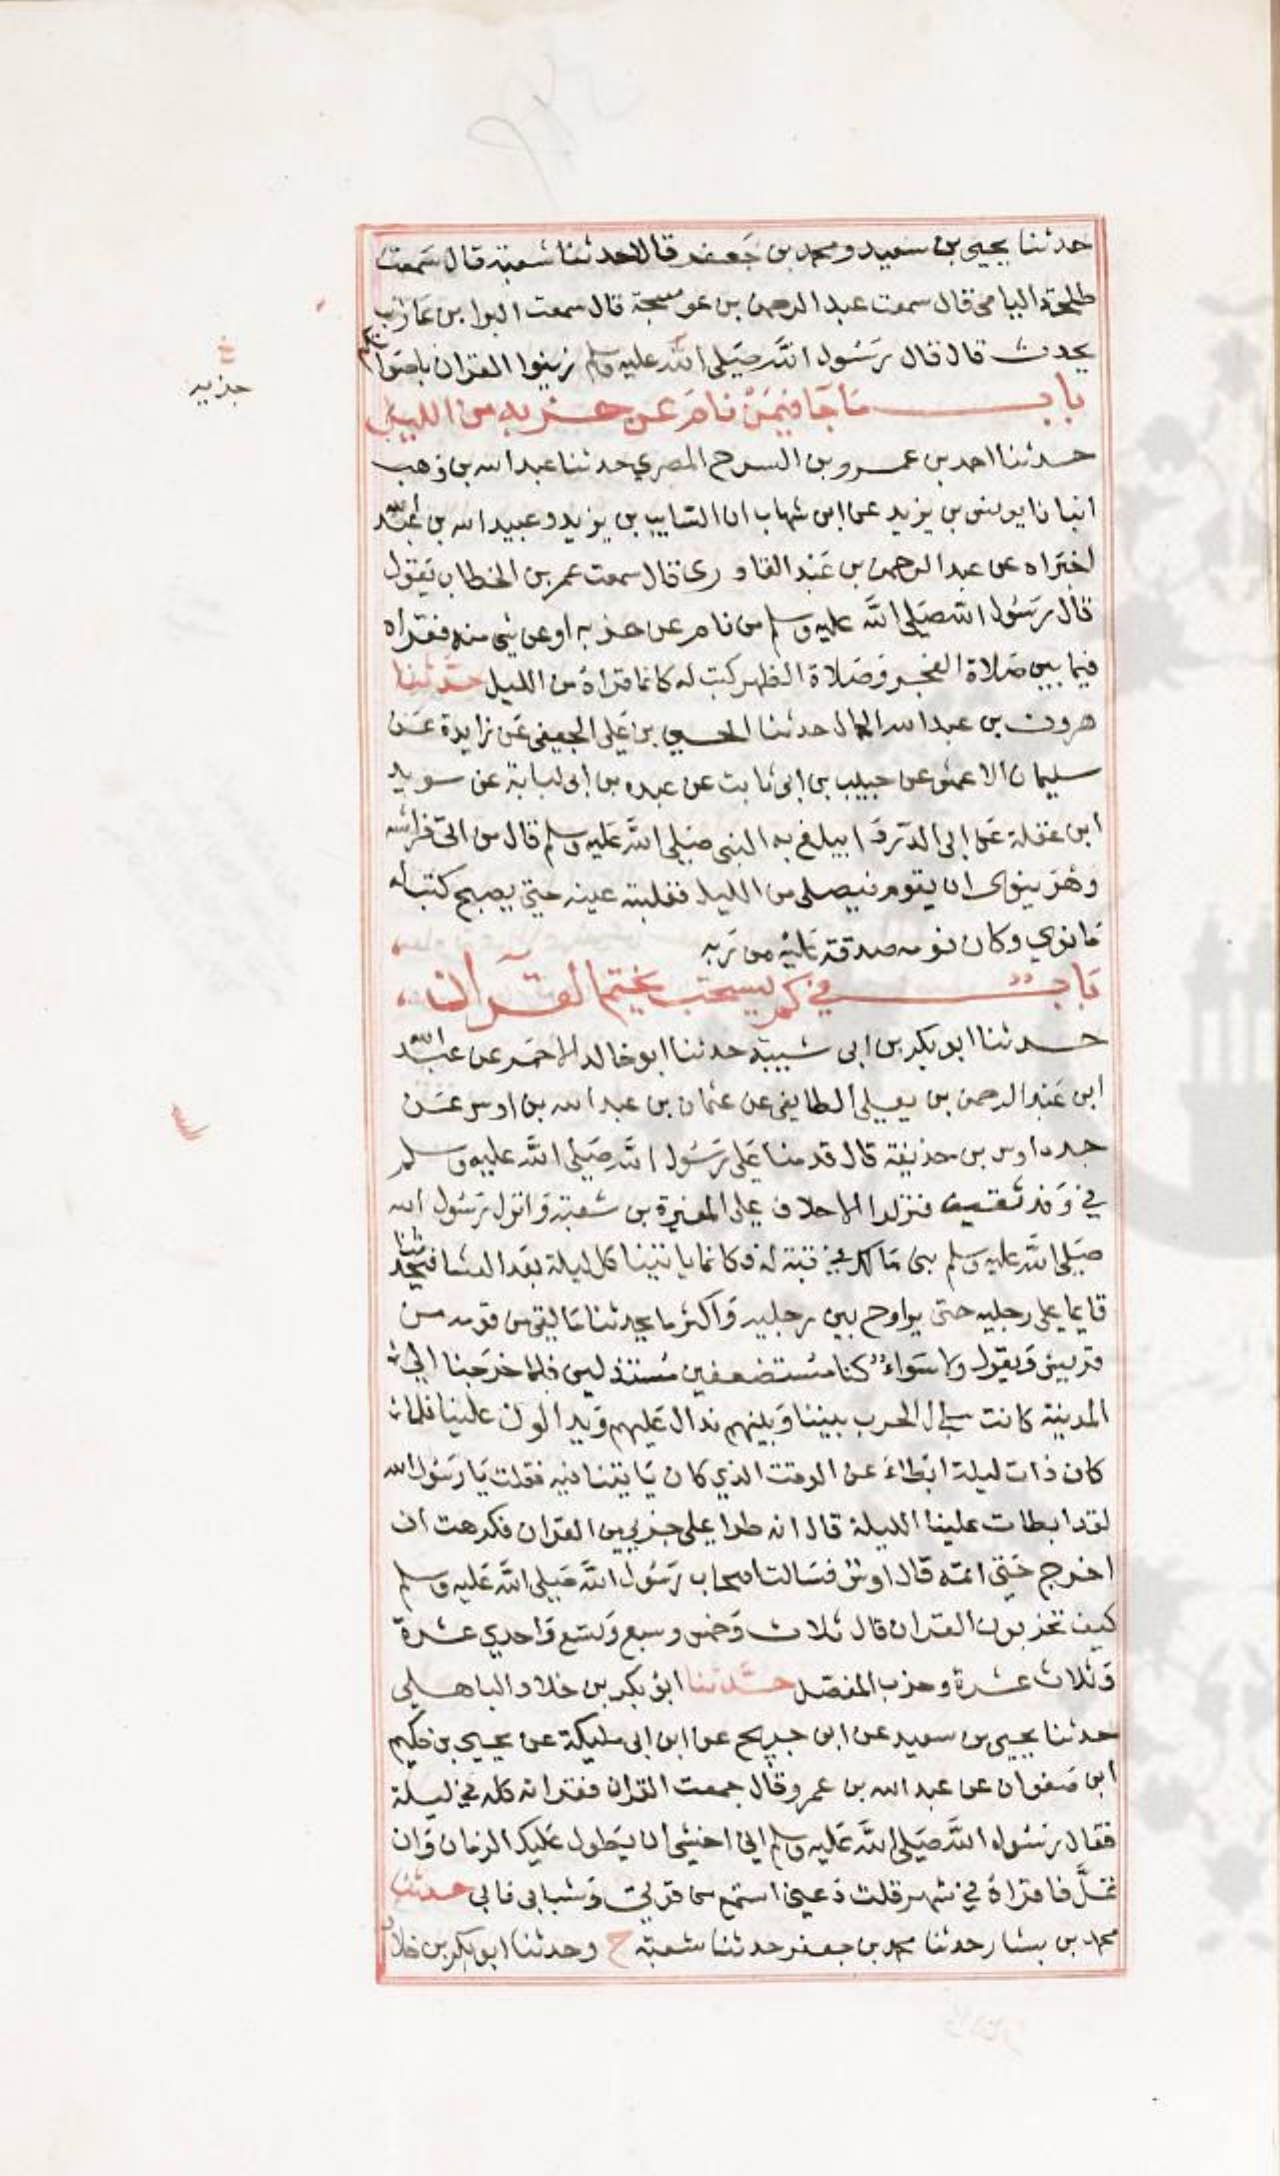 حدثنا يحيى بن سعيد ومحمد بن جعفر قالا حدثنا شعبة قال سمعت
طلحة اليامى قال سمعت عبد الرحمن بن عوسجة قال سمعت البرا بن عازب
يحدث قال قال رسول الله صلى الله عليه وسلم زينوا القران باصواتكم
باب ما جا فيمن نام عن حزبه من الليل
حدثنا احمد بن عمرو بن السرح المصري حدثنا عبد الله بن وهب
انبانا يونس بن يزيد عن ابن شهاب ان السايب بن يزيد وعبيد الله بن عبد الله
اخبراه عن عبد الرحمن بن عبد القاورى قال سمعت عمر بن الخطاب يقول
قال رسول الله صلى الله عليه وسلم من نام عن حزبه او عن شي منه فقراه
فيما بين صلاة الفجر وصلاة الظهر كتب له كانما قراه من الليل حدثنا
هرون بن عبد الله الحمال حدثنا الحسين بن على الجعفى عن زايدة عن
سليمان الاعمش عن حبيب بن ابى ثابت عن عبده بن ابى لبابة عن سويد
ابن غفلة عن ابى الدردا يبلغ به النبى صلى الله عليه وسلم قال من اتى فراشه
وهو ينوى ان يقوم فيصلى من الليل فغلبته عينه حتى يصبح كتب له
ما نوي وكان نومه صدقة عليه من ربه
باب في كم يستحب يختم القرآن
حدثنا ابو بكر بن ابى شيبة حدثنا ابو خالد الاحمر عن عبد الله
ابن عبد الرحمن بن يعلى الطايفى عن عثمان بن عبد الله بن اوس عن
جده اوس بن حذيفة قال قدمنا على رسول الله صلى الله عليه وسلم
في وفد ثقيف فنزلوا الاحلاف على المغيرة بن شعبة وانزل رسول الله
صلى الله عليه وسلم بنى مالك في قبة له وكانما ياتينا كل ليلة بعد العشا فيحدثنا
قايما على رجليه حتى يراوح بين رجليه واكثر ما يحدثنا ما لقي من قومه من
قريش ويقول ولا سواء كنا مستضعفين مستذلين فلما خرجنا الى
المدينة كانت سجال الحرب بيننا وبينهم ندال عليهم ويدالون علينا فلما
كان ذات ليلة ابطاء عن الوقت الذي كان ياتينا فيه فقلت يا رسول الله
لقد ابطات علينا الليلة قال انه طرا على حزبي من القران فكرهت ان
اخرج حتى اتمه قال اوس فسالت اصحاب رسول الله صلى الله عليه وسلم
كيف تحزبون القران قال ثلاث وخمس وسبع وتسع واحدي عشرة
وثلاث عشرة وحزب المفصل حدثنا ابو بكر بن خلاد الباهلى
حدثنا يحيى بن سعيد عن ابن جريج عن ابن ابى مليكة عن يحيى بن حكيم
ابن صفوان عن عبد الله بن عمرو قال جمعت القران فقراته كله في ليلة
فقال رسول الله صلى الله عليه وسلم اني اخشى ان يطول عليك الزمان وان
تمل فاقراه في شهر قلت دعني استمتع من قوتي وشبابى فابى حدثنا
محمد بن بشار حدثنا محمد بن جعفر حدثنا شعبة ح وحدثنا ابو بكر بن خلاد